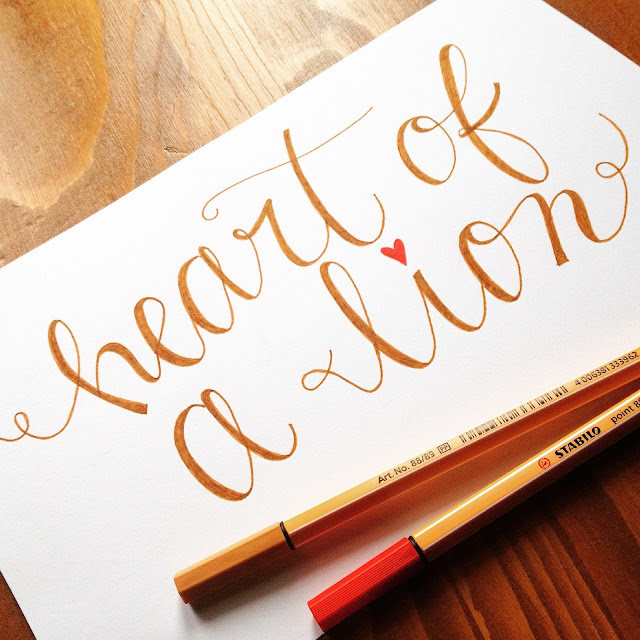 heart of
a lion
Art.No. 88/89
4 006381 333962
STABILO
point 88